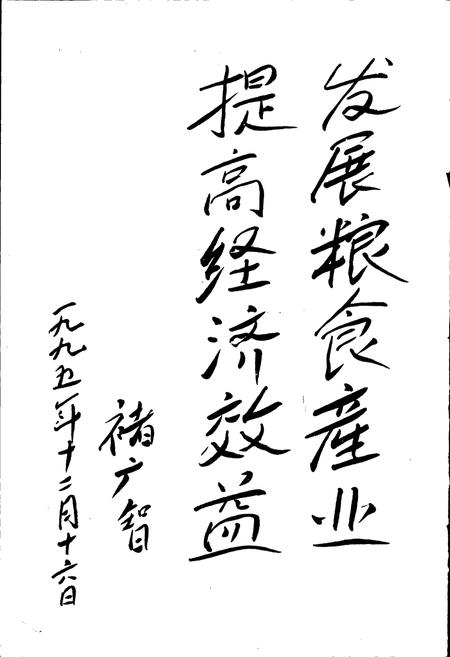 发展粮食産业
提高经济效益
褚广智
一九九五年十二月十六日